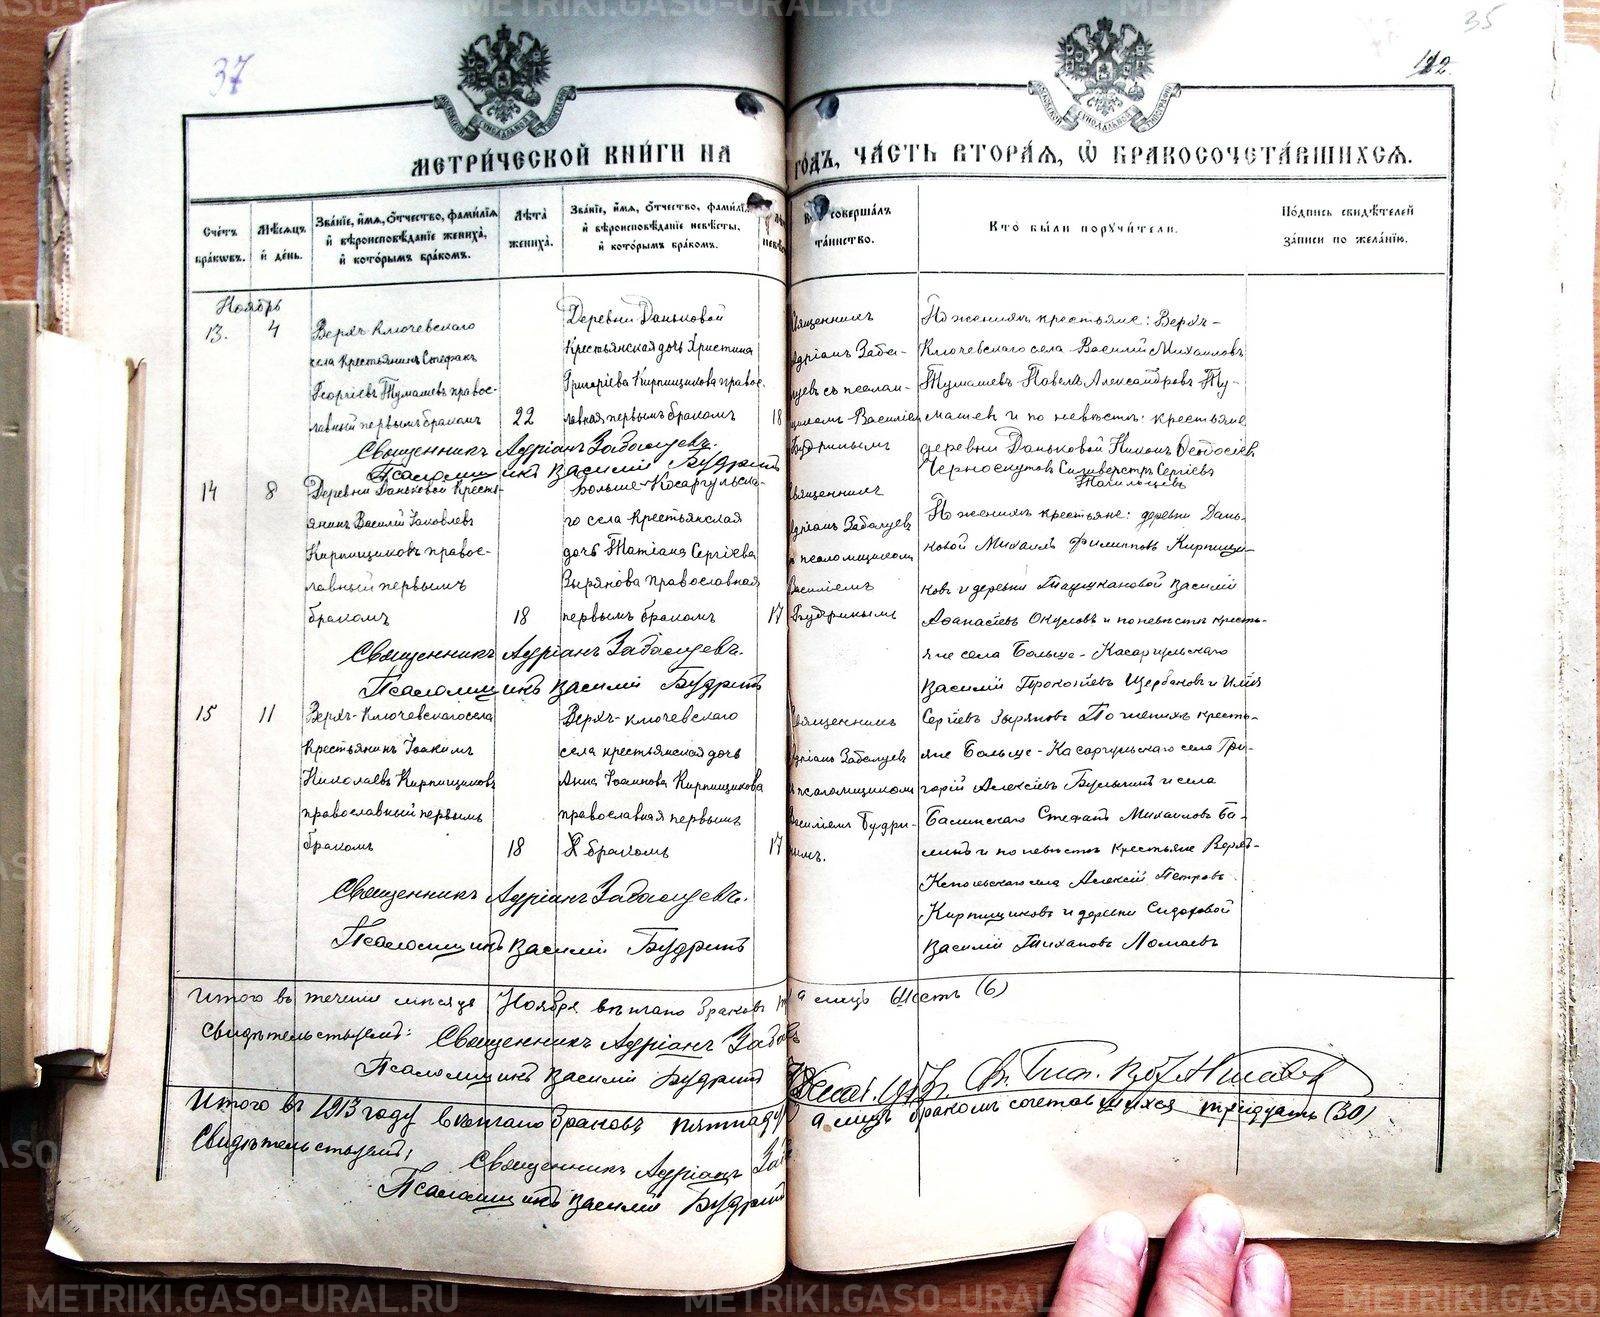 METRIKI.GASO-URAL.RU
37
35
112
МЕТРИ́ЧЕСКОЙ КНИ́ГИ НА
ГО́ДЪ, ЧА́СТЬ ВТОРА́Я, Ѡ БРАКОСОЧЕТА́ВШИХСЯ.
Сче́тъ бра́кѡвъ.
Мѣ́сяцъ и҆ де́нь.
Зва́нїе, и҆́мя, ѻ҆́тчество, фами́лїя
и҆ вѣроисповѣ́данїе жениха̀,
и҆ кото́рымъ бра́комъ.
Лѣ́та жениха̀.
Зва́нїе, и҆́мя, ѻ҆́тчество, фами́лїя
и҆ вѣроисповѣ́данїе невѣ́сты,
и҆ кото́рымъ бра́комъ.
соверша́лъ
та́инство.
Кто̀ бы́ли порꙋчи́тели.
По́дпись свидѣ́телей
за́писи по жела́нїю.
Ноябрь
13.
4
Верхъ-Ключевскаго
села Крестьянинъ Стефанъ
Георгіевъ Тумашевъ правос-
лавный первымъ бракомъ
22
Деревни Даньковой
Крестьянская дочь Христина
Григоріева Кирпищикова правос-
лавная первымъ бракомъ
18
Священникъ
Адріанъ Забол-
уевъ съ псалом-
щикомъ Василіем
Будринымъ
По женихѣ крестьяне: Верхъ-
Ключевскаго села Василій Михаиловъ
Тумашевъ Павелъ Александровъ Ту-
машев и по невѣстѣ: крестьяне
деревни Даньковой Никонъ Ѳеодосіев
Черноскутовъ Силиверстъ Сергіевъ
Священникъ Адріанъ Заболуевъ.
Псаломщикъ Василій Будринъ
14
8
Деревни Даньковой Кресть-
янинъ Василій Іаковлевъ
Кирпищиковъ правос-
лавный первымъ
бракомъ
18
Больше-Косаргульска-
го села Крестьянская
дочь Татіана Сергіева
Зырянова православная
первымъ бракомъ
17
Священникъ
Адріанъ Заболуевъ
псаломщикомъ
Василіемъ
Будринымъ
По женихѣ крестьяне: деревни Дань-
ковой Михаилъ Филипповъ Кирпищи-
ковъ и деревни Василій
Аѳанасіевъ Окуловъ и по невѣстѣ кресть-
яне села Больше-Касаргульскаго
Василій Прокопіевъ Щербаковъ и Илія
Сергіевъ Зыряновъ
Священникъ Адріанъ Заболуевъ.
Псаломщикъ Василій Будринъ
15
11
Верхъ-Ключевскаго села
Крестьянинъ Іоакимъ
Николаевъ Кирпищиковъ
православный первымъ
бракомъ
18
Верхъ-Ключевскаго
села крестьянская дочь
Анна Іоаннова Кирпищикова
православная первымъ
бракомъ
17
Священникъ
Адріанъ Заболуевъ
псаломщикомъ
Василіемъ Будри-
нымъ.
По женихѣ кресть-
яне Больше-Касаргульскаго села Гри-
горій Алексіевъ Булыгинъ и села
Баинскаго Стефанъ Михаиловъ Ба-
инъ и по невѣстѣ крестьяне Верхъ-
Ключевскаго села Алексій Петровъ
Кирпищиковъ и деревни Сидоровой
Василій Тихановъ Ломаевъ
Священникъ Адріанъ Заболуевъ.
Псаломщикъ Василій Будринъ
Итого въ теченіи мѣсяца Ноября вѣнчано браковъ
а лицъ шесть (6)
Свидѣтельствуемъ: Священникъ Адріанъ Забол
Псаломщикъ Василій Будринъ
Итого въ 1913 году вѣнчано браковъ пятнадц
а лицъ бракомъ сочетавшихся тридцать (30)
Свидѣтельствуемъ,
Священникъ Адріанъ Заб
Псаломщикъ Василій Будрин
METRIKI.GASO-URAL.RU
METRIKI.GASO-URAL.RU
METRIKI.GASO